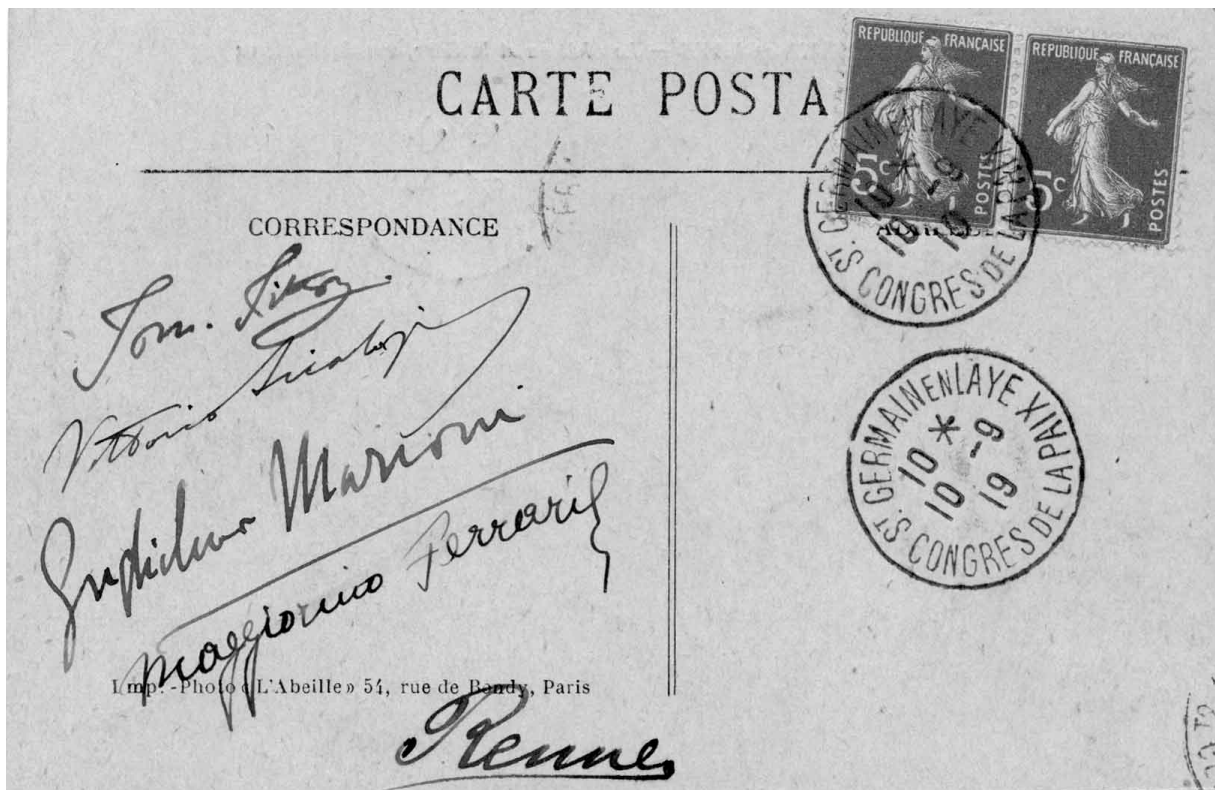 CARTE POSTA
REPUBLIQUE FRANÇAISE
5c
POSTES
REPUBLIQUE FRANÇAISE
5c
POSTES
ST GERMAIN EN LAYE XIII
10 * -9
10 19
S. CONGRES DE LA PAIX
CORRESPONDANCE
Tom. Tittoni
Vittorio Scialoja
Guglielmo Marconi
Maggiorino Ferraris
ST GERMAIN EN LAYE XII
10 * -9
10 19
S. CONGRES DE LA PAIX
Imp.-Photo « L'Abeille » 54, rue de Bondy, Paris
Renner